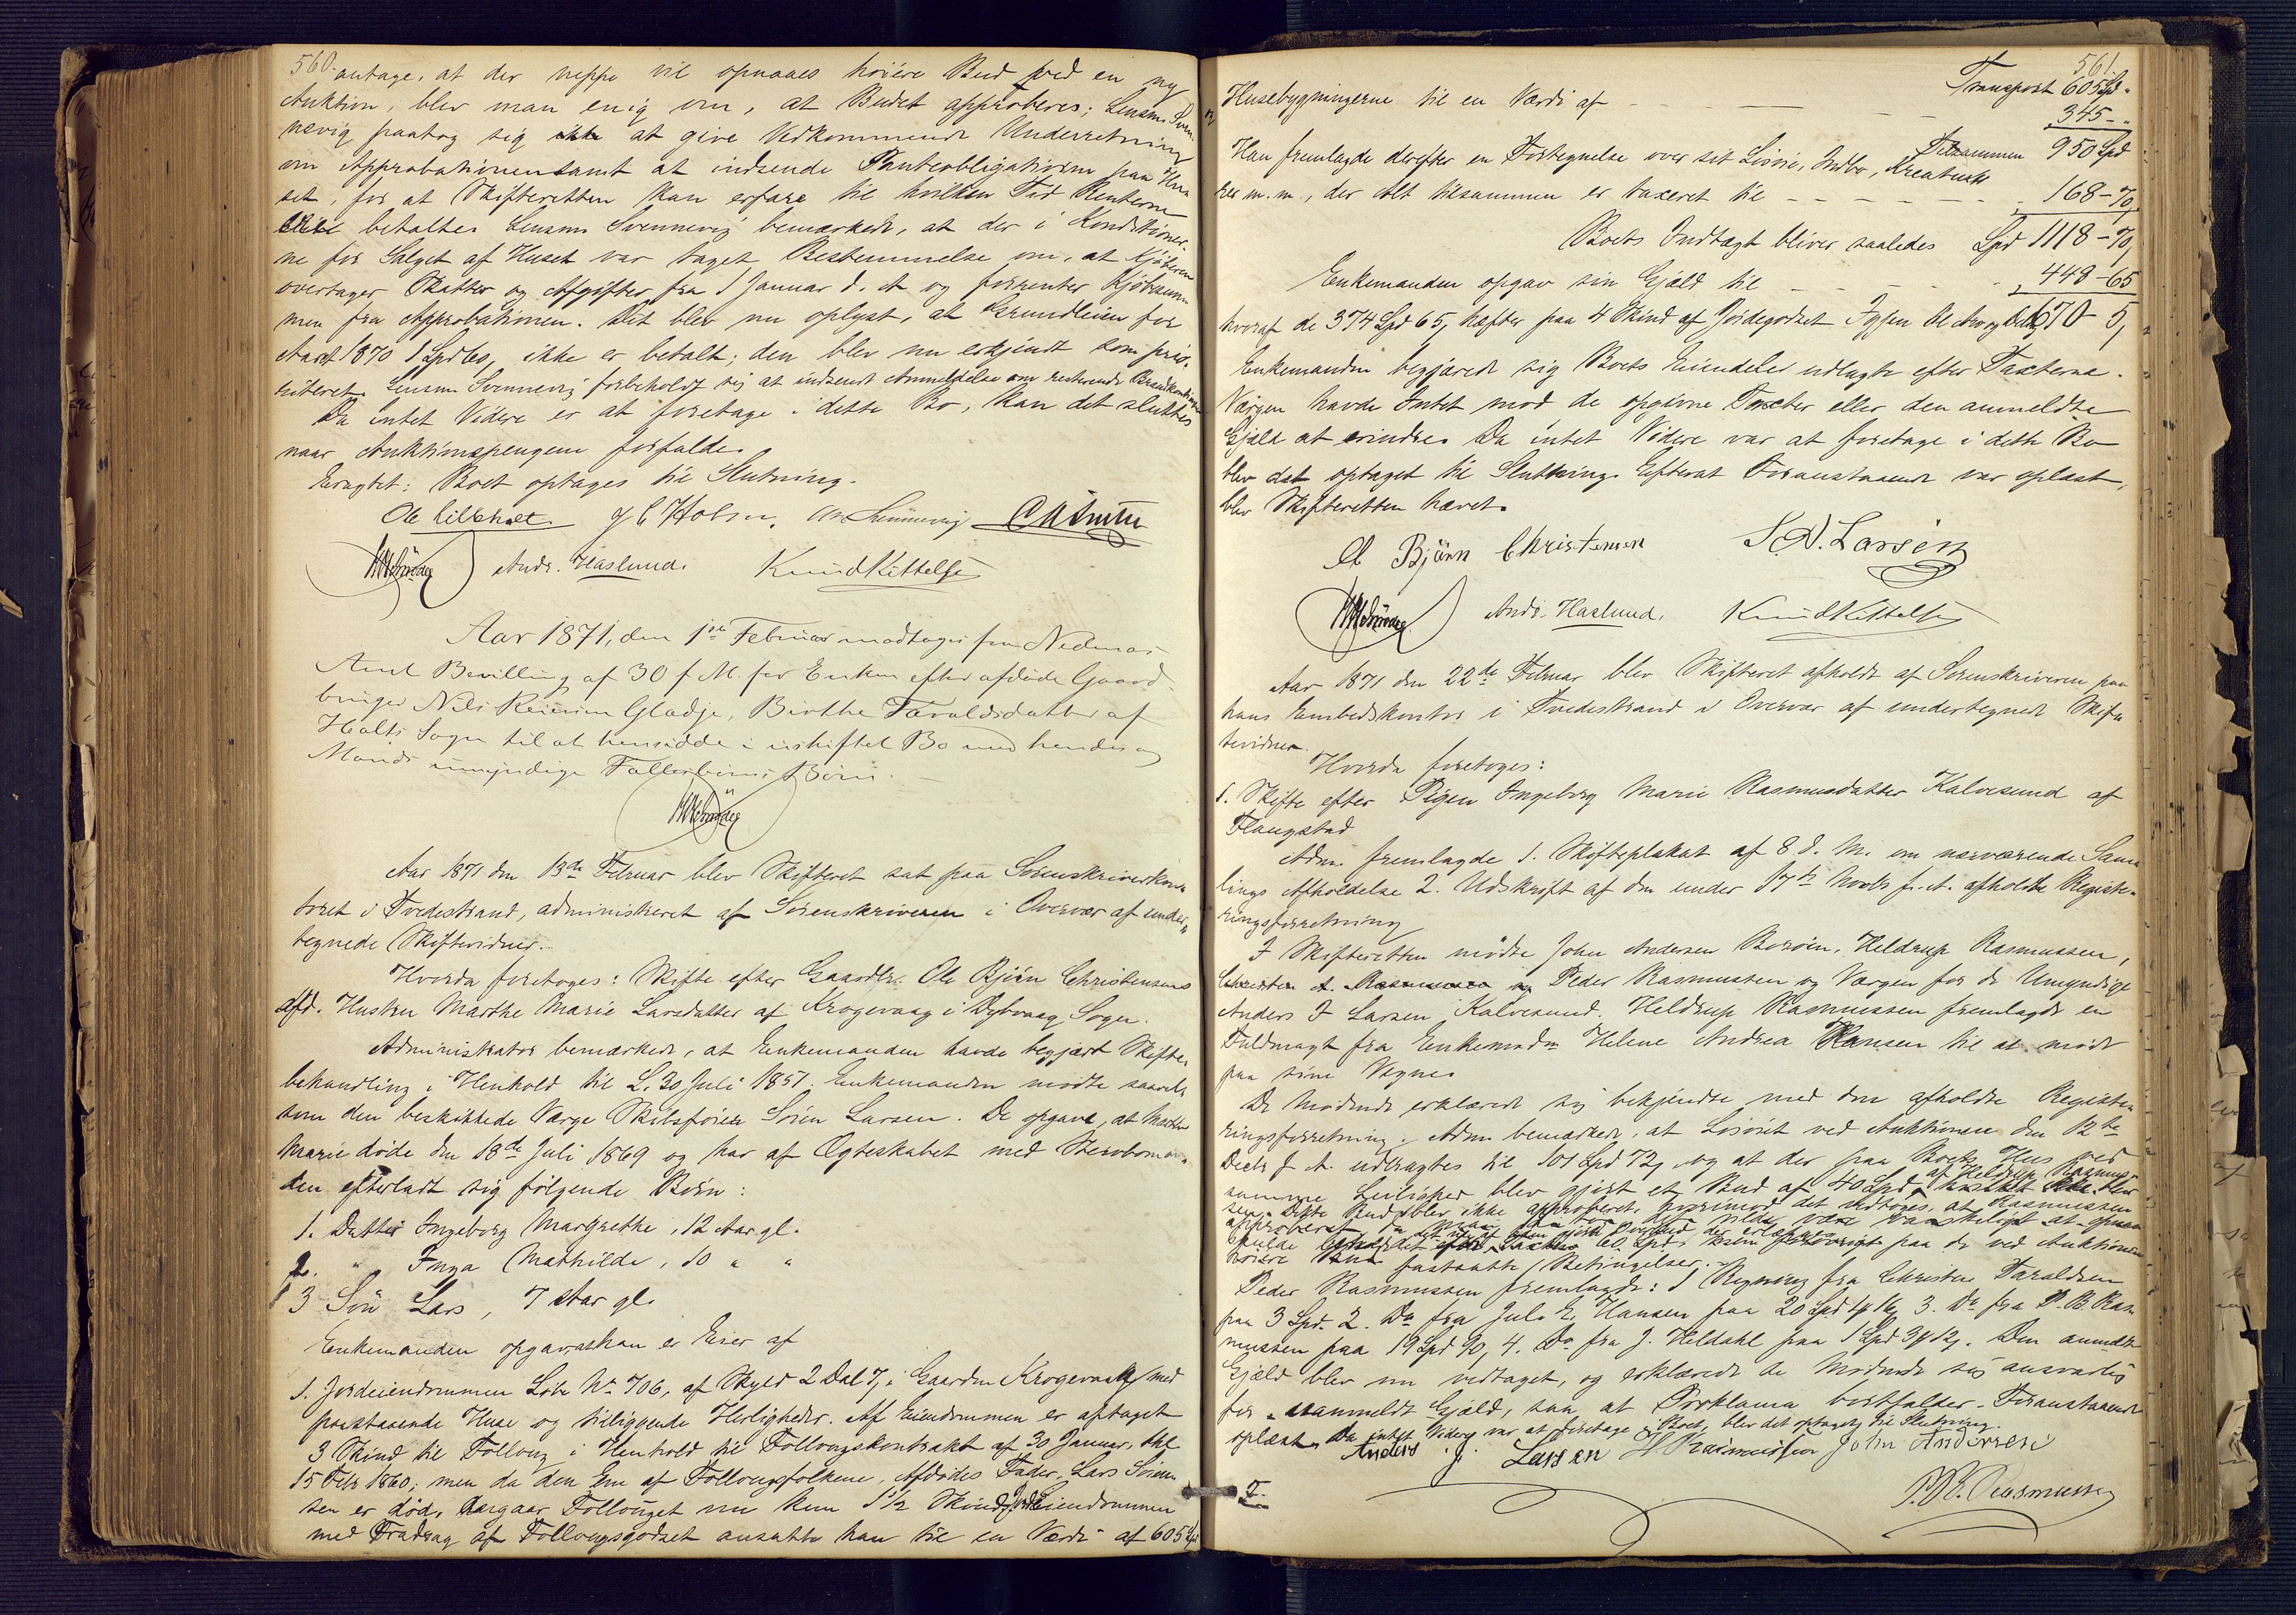 560.
antage, at der neppe vil opnaaes høiere Bud ved en ny
Auktion, blev man enig om, at Budet approberes; Lensm. Sven-
nevig paatog sig at give Vedkommende Underretning
om Approbationen samt at indsende Panteobligationen paa Hu-
set, for at Skifteretten kan erfare til hvilken Tid Renterne
betaltes. Lensm. Svennevig bemærkede, at der i Konditioner-
ne for Salget af Huset var taget Bestemmelse om, at Kjøberen
overtager Skatter og Afgifter fra 1 Januar d. A. og forrenter Kjøbesum-
men fra Approbationen. Det blev nu oplyst, at Grundleien for
Aaret 1870 1 Spd 60, ikke er betalt; den blev nu erkjendt som prio-
riteret. Lensm. Svennevig forbeholdt sig at indsende Anmeldelse om resterende Brandkontingent
Da intet Videre er at foretage i dette Bo, kan det sluttes
naar Auktionspengene forfalde.
Eragtet: Boet optages til Slutning.
Ole Lilleholt. J C Holm. Svennevig C M Smith
Andr. Haslund. Knud Kittelsen
Aar 1871, den 1ste Februar modtoges fra Nedenæs
Amt Bevilling af 30 f. M. for Enken efter afdøde Gaard-
bruger Nils Reiersen Gladje, Birthe Taraldsdatter af
Holts Sogn til at hensidde i uskiftet Bo med hendes og
Mands umyndige Fællesbørn Børn.
Aar 1871 den 13de Februar blev Skifteret sat paa Sorenskriverkon-
toret i Tvedestrand, administreret af Sorenskriveren i Overvær af under-
tegnede Skiftevidner.
Hvorda foretoges: Skifte efter Gaardbr. Ole Bjørn Christensens
afd. Hustru Marthe Marie Larsdatter af Krogevaag i Dybvaag Sogn.
Administrator bemærkede, at Enkemanden havde begjært Skifte-
behandling i Henhold til L. 30 Juli 1851. Enkemanden mødte saavel
som den beskikkede Værge Skibsfører Søren Larsen. De opgave, at Marthe
Marie døde den 18de Juli 1869 og har af Ægteskabet med Stervboman-
den efterladt sig følgende Børn:
1. Datter Ingeborg Margrethe, 12 Aar gl.
2. " Inga Mathilde, 10 " "
3 Søn Lars, 7 Aar gl.
Enkemanden opgav, at han er Eier af
1. Jordeiendommen Løbe No 706, af Skyld 2 Dal 7, i Gaarden Krogevaag med
paastaaende Huse og tilliggende Herligheder. Af Eiendommen er aftaget
3 Skind til Follaug i Henhold til Follaugskontrakt af 30 Januar, thl.
15 Febr 1860; men da den Ene af Follaugsfolkene, Afdødes Fader, Lars Søren-
sen er død, udgaar Follauget nu kun 1½ Skind. Jordeiendommen
med Fradrag af Follaugsgodset ansatte han til en Værdi af 605 Spd
561.
Transport 605 Spd.
Husebygningerne til en Værdi af - - - 345 - "
Tilsammen 950 Spd
Han fremlagde derefter en Fortegnelse over sit Løsøre, Indbo, Kreatu-
rer m. m., der Alt tilsammen er taxeret til - - - 168 - 70,
Boets Indtægt bliver saaledes Spd 1118 - 70,
Enkemanden opgav sin Gjæld til - - - 448 - 65
hvoraf de 374 Spd 65, hæfter paa 4 Skind af Jordegodset 670 - 5,
Enkemanden begjærede sig Boets Eiendele udlagte efter Taxterne.
Værgen havde Intet mod de opgivne Taxter eller den anmeldte
Gjæld at erindre. Da intet Videre var at foretage i dette Bo
blev det optaget til Slutning. Efterat Foranstaaende var oplæst,
blev Skifteretten hævet.
Ole Bjørn Christensen S. N. Larsen
Andr. Haslund. Knud Kittelsen
Aar 1871 den 22de Februar blev Skifteret afholdt af Sorenskriveren paa
hans Embedskontor i Tvedestrand i Overvær af undertegnede Skif-
tevidner.
Hvorda foretoges:
1. Skifte efter Pigen Ingeborg Marie Rasmusdatter Kalvesund af
Flaugstad
Adm. fremlagde 1. Skifteplakat af 8 d. M. om nærværende Sam-
lings Afholdelse 2. Udskrift af den under 17de Novbr f. A. afholdte Registe-
ringsforretning
I Skifteretten mødte John Andersen Borøen, Heldrup Rasmussen,
Peder Rasmussen og Værgen for de Umyndige
Anders J Larsen Kalvesund. Heldrup Rasmussen fremlagde en
Fuldmagt fra Enkemadm Helene Andrea Hansen til at møde
paa sine Vegne.
De Mødende erklærede sig bekjendte med den afholdte Registe-
ringsforretning. Adm. bemærkede, at Løsøret ved Auktionen den 12te
Decbr f. A. udbragtes til 101 Spd 72, og at der paa Boets Hus ved
samme Leilighed blev gjort et Bud af 40 Spd af Heldrup Rasmus-
sen. Dette Bud blev ikke approberet, hvorimod det vedtoges, at Rasmussens
approberes, da man vilde være vanskeligt at opnaa
60 Spd, som forøvrigt paa de ved Auktionen
høiere Bud fastsatte Betingelser.
Peder Rasmussen fremlagde: 1 Regning fra Christen Taraldsen
paa 3 Spd. 2. Do fra Jul. E. Hansen paa 20 Spd 4 # 16, 3. Do fra P. B. Ras-
mussen paa 19 Spd 90, 4. Do fra J. Heldahl paa 1 Spd 3 # 12,. Den anmeldte
Gjæld blev nu vedtaget, og erklærede de Mødende sig ansvarlig
for uanmeldt Gjæld, saa at Proklama bortfalder. Foranstaaende
oplæst. Da intet Videre var at foretage i Boet, blev det optaget til Slutning.
Anders J. Larsen H Rasmussen John Andersen
P. B. Rasmussen